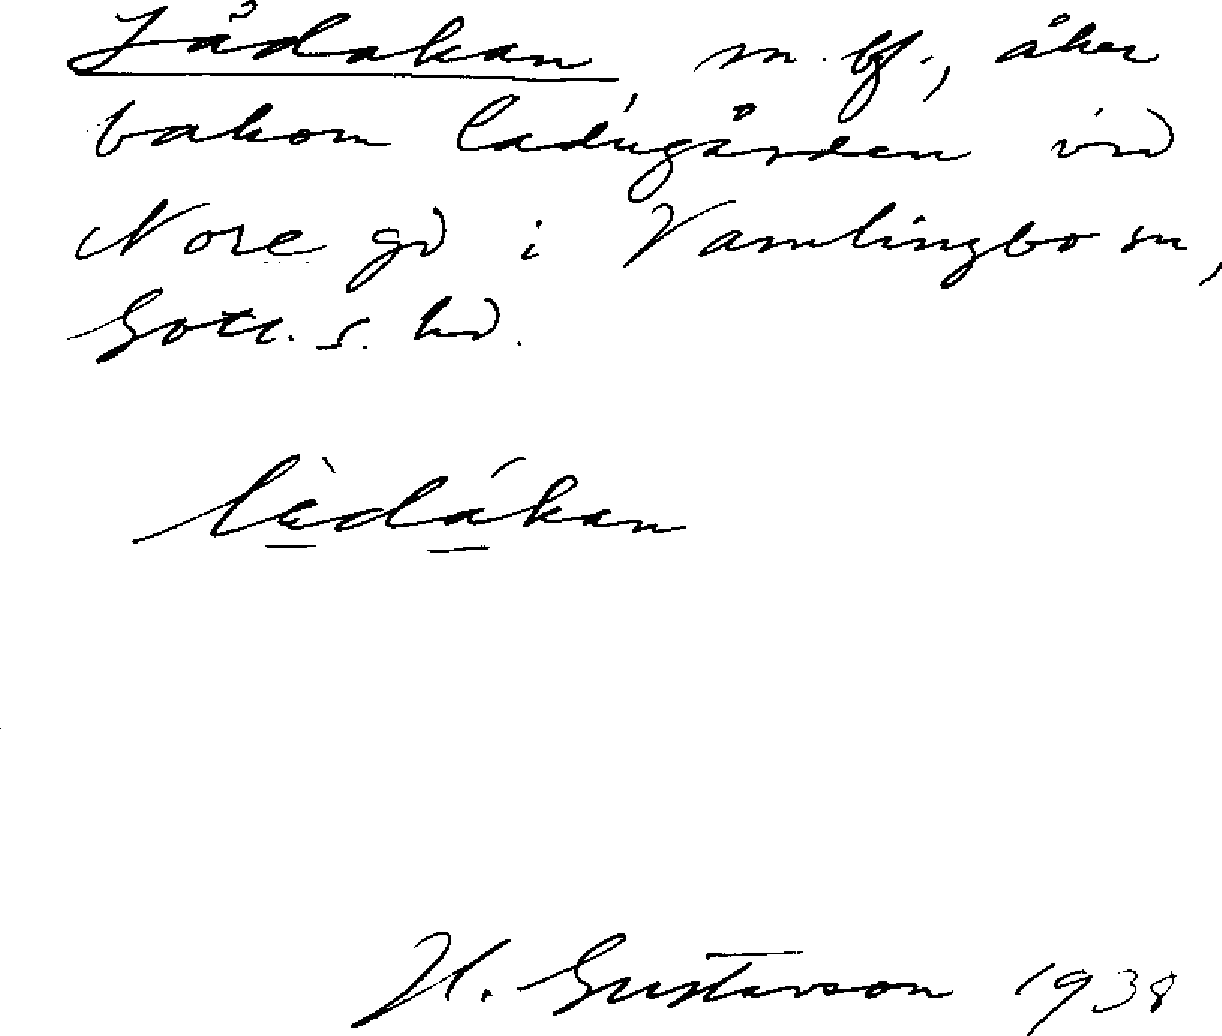 Lådåkan, m. bf., åker
bakom ladugården vid
Nore gd i Vamlingbo sn,
Gotl. s. hd.
lædåkan
H. Gustavson 1938